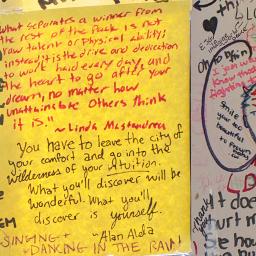 What separates a winner from
the rest of the pack is not
raw talent or physical ability;
instead, it is the drive and dedication
to work hard every day, and
the heart to go after your
dream, no matter how
unattainable others think
it is."
~ Linda Mastandrea
You have to leave the city of
your comfort and go into the
wilderness of your intuition.
What you'll discover will be
wonderful. What you'll
discover is yourself.
~Alan Alda
SINGING +
DANCING IN THE RAIN!
Smile
you are
beautiful
to
Thank you
It doe
hurt m
See ho